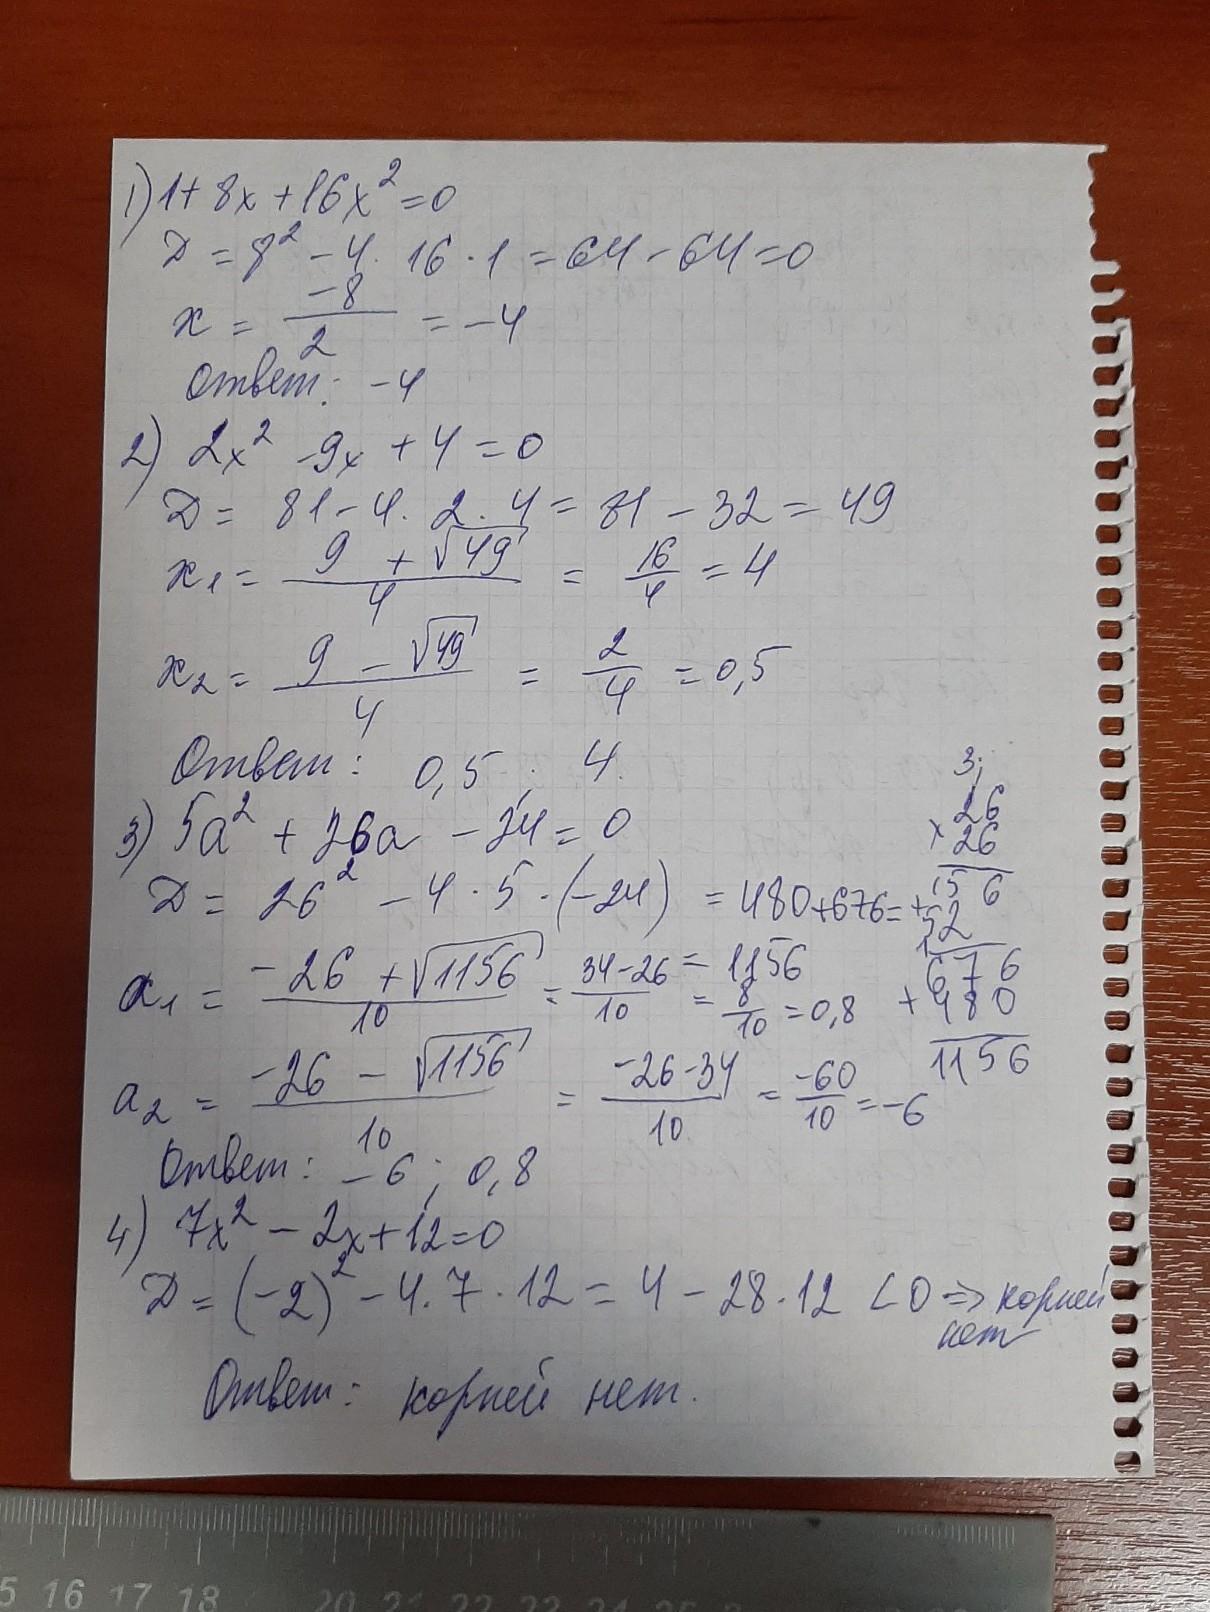 1) 1+8x+16x²=0
D = 8² - 4 · 16 · 1 = 64 - 64 = 0
x = -8/2 = -4
Ответ: -4
2) 2x² - 9x + 4 = 0
D = 81 - 4 · 2 · 4 = 81 - 32 = 49
x₁ = (9 + √49)/4 = 16/4 = 4
x₂ = (9 - √49)/4 = 2/4 = 0,5
Ответ: 0,5 ; 4.
3) 5a² + 26a - 24 = 0
D = 26² - 4 · 5 · (-24) = 480+676=
= 1156
a₁ = (-26 + √1156)/10 = (34-26)/10 = 8/10 = 0,8
a₂ = (-26 - √1156)/10 = (-26-34)/10 = -60/10 = -6
Ответ: -6 ; 0,8
3;
26
× 26
156
+ 52
676
+ 480
1156
4) 7x² - 2x + 12 = 0
D = (-2)² - 4 · 7 · 12 = 4 - 28 · 12 < 0 => корней
нет
Ответ: корней нет.
5 16 17 18 20 21 22 23 24 25